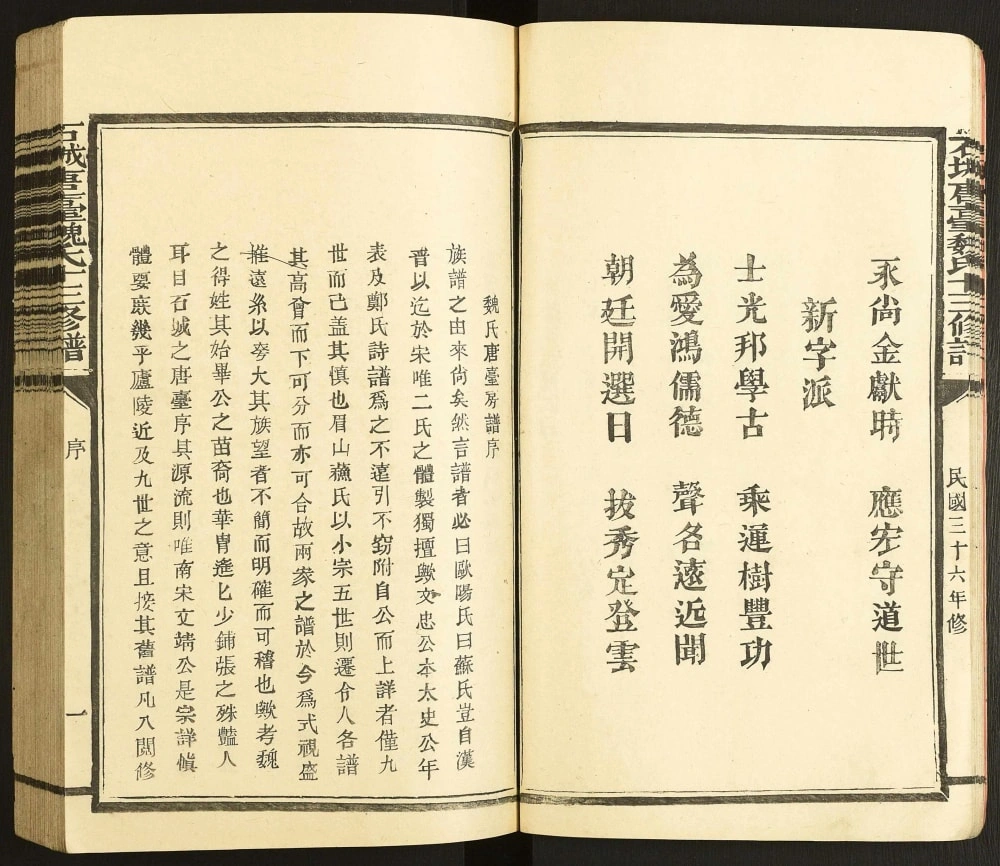 民國三十六年修
永尚金獻時　應宏守道世
新字派
士光邦學古　乘運樹豐功
為愛鴻儒德　聲名遠近聞
朝廷開選日　拔秀定登雲
魏氏唐臺房譜序
族譜之由來尚矣然言譜者必曰歐陽氏曰蘇氏豈自漢
晋以迄於宋唯二氏之體製獨擅歟文忠公本太史公年
表及鄭氏詩譜爲之不遠引不竊附自公而上詳者僅九
世而已盖其慎也眉山蘓氏以小宗五世則遷令人各譜
其高曾而下可分而亦可合故兩家之譜於今爲式視盛
推遠糸以夸大其族望者不簡而明確而可稽也歟考魏
之得姓其始畢公之苗裔也華冑遙匕少鋪張之殊豔人
耳目石城之唐臺序其源流則唯南宋文靖公是宗詳愼
體要庻幾乎廬陵近及九世之意且接其舊譜凡八閱修
石城唐臺魏氏十三修譜
序
一